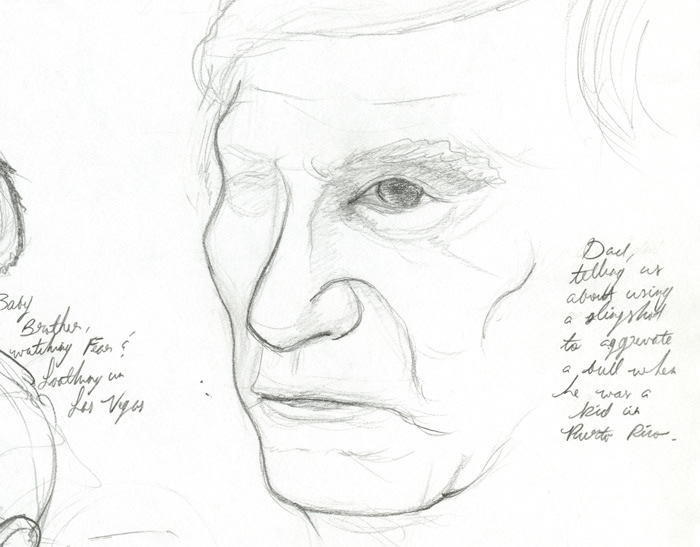 Baby
Brother,
watching Fear &
Loathing in
Las Vegas
Dad,
telling us
about using
a slingshot
to aggrevate
a bull when
he was a
kid in
Puerto Rico.